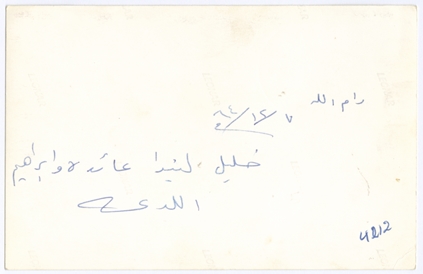 رام الله ٧/١٢/٦٤
خليل، ليندا عائده وابراهيم
اللدعه
4212